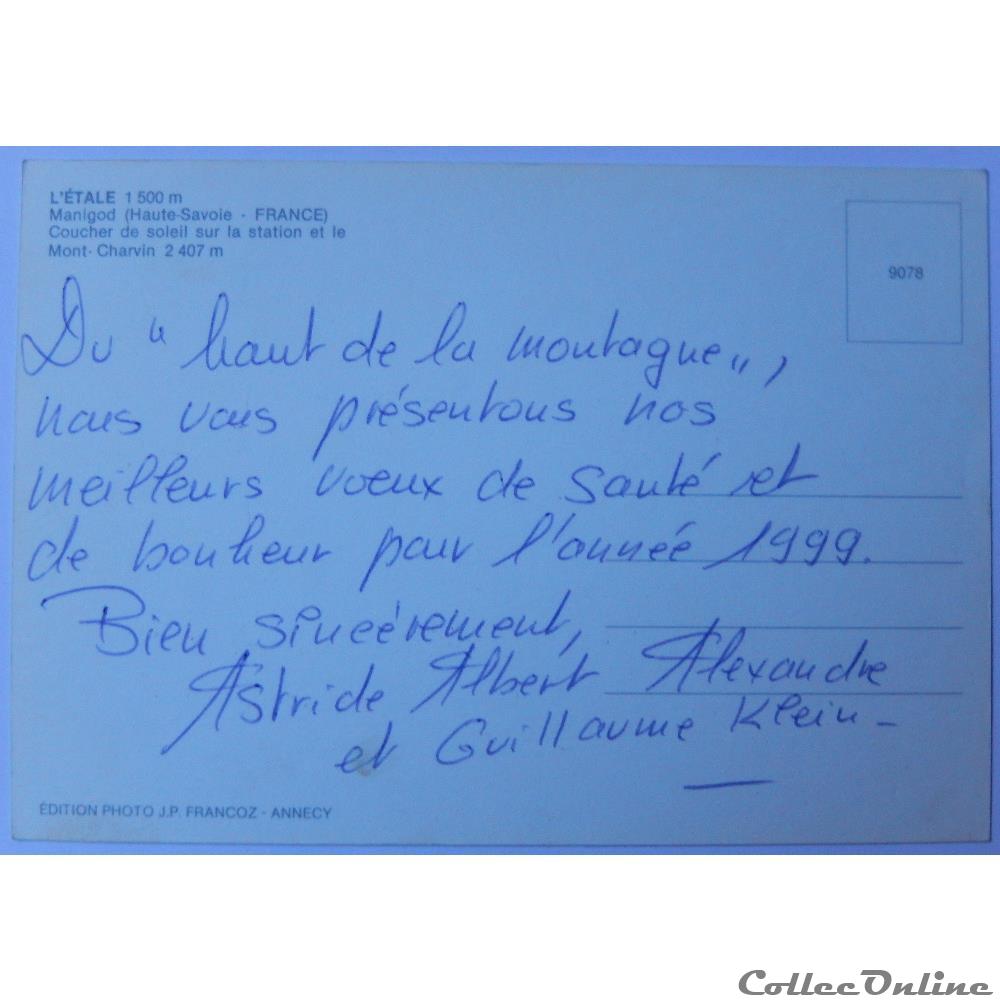 L'ÉTALE 1 500 m
Manigod (Haute-Savoie - FRANCE)
Coucher de soleil sur la station et le
Mont-Charvin 2 407 m
9078
Du " haut de la montagne ",
nous vous présentons nos
meilleurs voeux de santé et
de bonheur pour l'année 1999.
Bien sincèrement,
Astride Albert Alexandre
et Guillaume Klein -
ÉDITION PHOTO J.P. FRANCOZ - ANNECY
CollecOnline